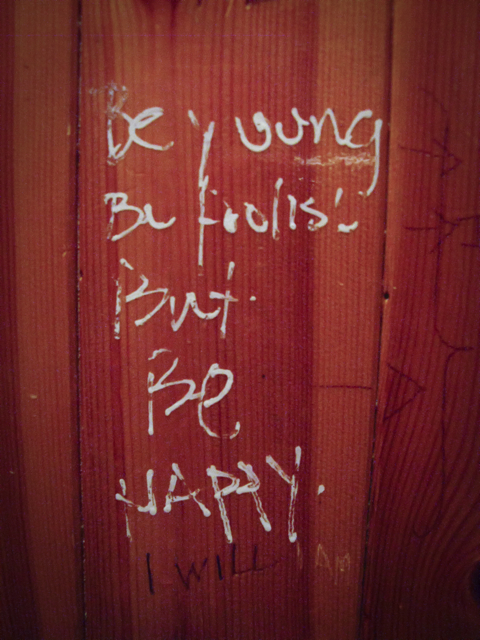 Be young
Be foolish
But
Be
HAPPY.
I WILL I AM